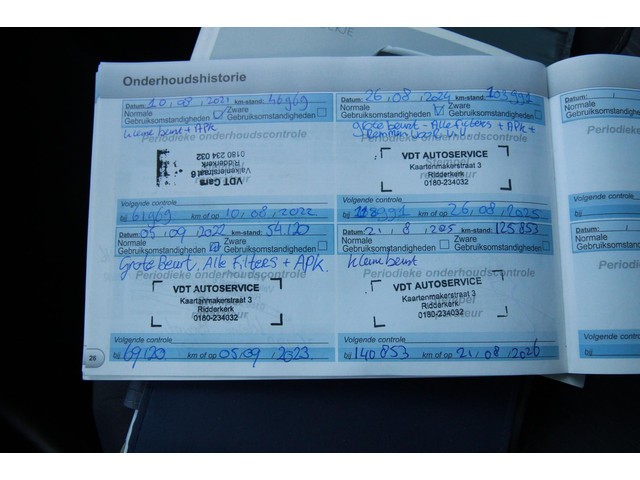 Onderhoudshistorie
Datum: 10, 08, 2021 km-stand: 46969
Normale Gebruiksomstandigheden
Zware Gebruiksomstandigheden
kleine beurt + APK
Periodieke onderhoudscontrole
VDT Cars
Varkenierstraat 6
Ridderkerk
0180 234 032
Volgende controle
bij 61969 km of op 10, 08, 2022
Datum: 05, 09, 2022 km-stand: 54120
Normale Gebruiksomstandigheden
Zware Gebruiksomstandigheden
Grote Beurt, Alle Filters + APK.
Periodieke onderhoudscontrole
VDT AUTOSERVICE
Kaartenmakerstraat 3
Ridderkerk
0180-234032
Volgende controle
bij 69120 km of op 05, 09, 2023
26
Datum: 26, 08, 2024 km-stand: 103991
Normale Gebruiksomstandigheden
Zware Gebruiksomstandigheden
grote beurt - Alle filters + APK +
Periodieke onderhoudscontrole
VDT AUTOSERVICE
Kaartenmakerstraat 3
Ridderkerk
0180-234032
Volgende controle
bij 118991 km of op 26, 08, 2025
Datum: 21, 8, 205 km-stand: 125853
Normale Gebruiksomstandigheden
Zware Gebruiksomstandigheden
kleine beurt
Periodieke onderhoudscontrole
VDT AUTOSERVICE
Kaartenmakerstraat 3
Ridderkerk
0180-234032
Volgende controle
bij 140853 km of op 21, 08, 2026
Datum:
Normale
Gebruiksomstandig
Periodi
Volgende controle
bij
Datum:
Normale
Gebruiksomstandig
Periodi
Volgende controle
bij